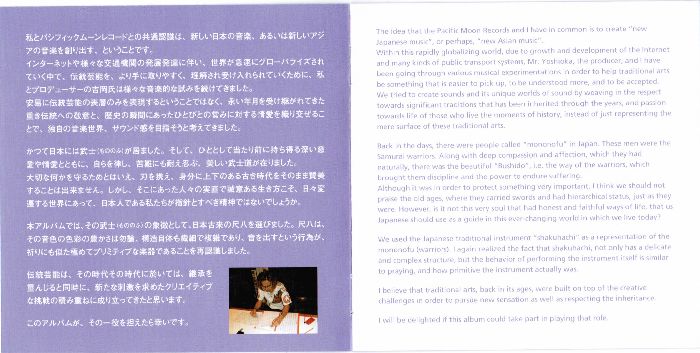 私とパシフィックムーンレコードとの共通認識は、新しい日本の音楽、あるいは新しいアジ
アの音楽を創り出す、ということです。
インターネットや様々な交通機関の発展発達に伴い、世界が急速にグローバライズされ
ていく中で、伝統芸能を、より手に取りやすく、理解され受け入れられていくために、私
とプロデューサーの吉岡氏は様々な音楽的な試みを続けてきました。
安易に伝統芸能の表層のみを表現するということではなく、永い年月を受け継がれてきた
重き伝統への敬意と、歴史の瞬間にあったひとびとの営みに対する情愛を織り交ぜるこ
とで、独自の音楽世界、サウンド感を目指そうと考えてきました。
かつて日本には武士(もののふ)が居ました。そして、ひととして当たり前に持ち得る深い慈
愛や情愛とともに、自らを律し、苦難にも耐え忍ぶ、美しい武士道が在りました。
大切な何かを守るためとはいえ、刃を携え、身分に上下のある古き時代をそのまま賛美
することは出来ません。しかし、そこにあった人々の実直で誠意ある生き方こそ、日々変
遷する世界にあって、日本人である私たちが指針とすべき精神ではないでしょうか。
本アルバムでは、その武士(もののふ)の象徴として、日本古来の尺八を選びました。尺八は、
その音色の色彩の豊かさは勿論、構造自体も繊細で複雑であり、音を出すという行為が、
祈りにも似た極めてプリミティブな楽器であることを再認識しました。
伝統芸能は、その時代その時代に於いては、継承を
重んじると同時に、新たな刺激を求めたクリエイティブ
な挑戦の積み重ねに成り立ってきたと思います。
このアルバムが、その一役を担えたら幸いです。
The idea that the Pacific Moon Records and I have in common is to create "new
Japanese music", or perhaps, "new Asian music".
Within this rapidly globalizing world, due to growth and development of the Internet
and many kinds of public transport systems, Mr. Yoshioka, the producer, and I have
been going through various musical experimentations in order to help traditional arts
be something that is easier to pick up, to be understood more, and to be accepted.
We tried to create sounds and its unique worlds of sound by weaving in the respect
towards significant traditions that has been inherited through the years, and passion
towards life of those who live the moments of history, instead of just representing the
mere surface of these traditional arts.
Back in the days, there were people called "mononofu" in Japan. These men were the
Samurai warriors. Along with deep compassion and affection, which they had
naturally, there was the beautiful "Bushido", i.e. the way of the warriors, which
brought them discipline and the power to endure suffering.
Although it was in order to protect something very important, I think we should not
praise the old ages, where they carried swords and had hierarchical status, just as they
were. However, is it not this very soul that had honest and faithful ways of life, that us
Japanese should use as a guide in this ever changing world in which we live today?
We used the Japanese traditional instrument "shakuhachi" as a representation of the
monofu (warriors). I again realized the fact that shakuhachi, not only has a delicate
and complex structure, but the behavior of performing the instrument itself is similar
to praying, and how primitive the instrument actually was.
I believe that traditional arts, back in its ages, were built on top of the creative
challenges in order to pursue new sensation as well as respecting the inheritance.
I will be delighted if this album could take part in playing that role.